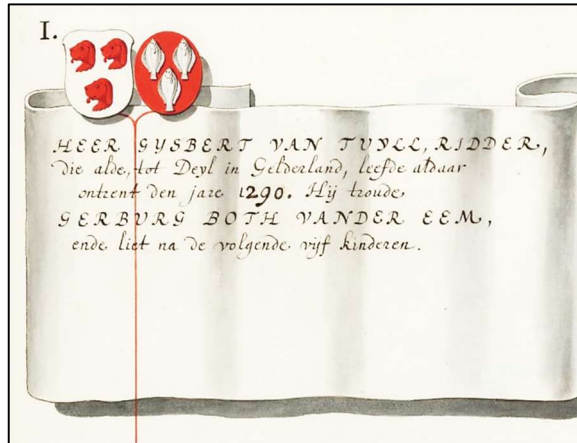 I.
HEER GYSBERT VAN TUYLL, RIDDER,
die alde, tot Deyl in Gelderland, leefde aldaar
ontrent den jare 1290. Hij troude
GERBURG BOTH VANDER EEM,
ende liet na de volgende vijf kinderen.